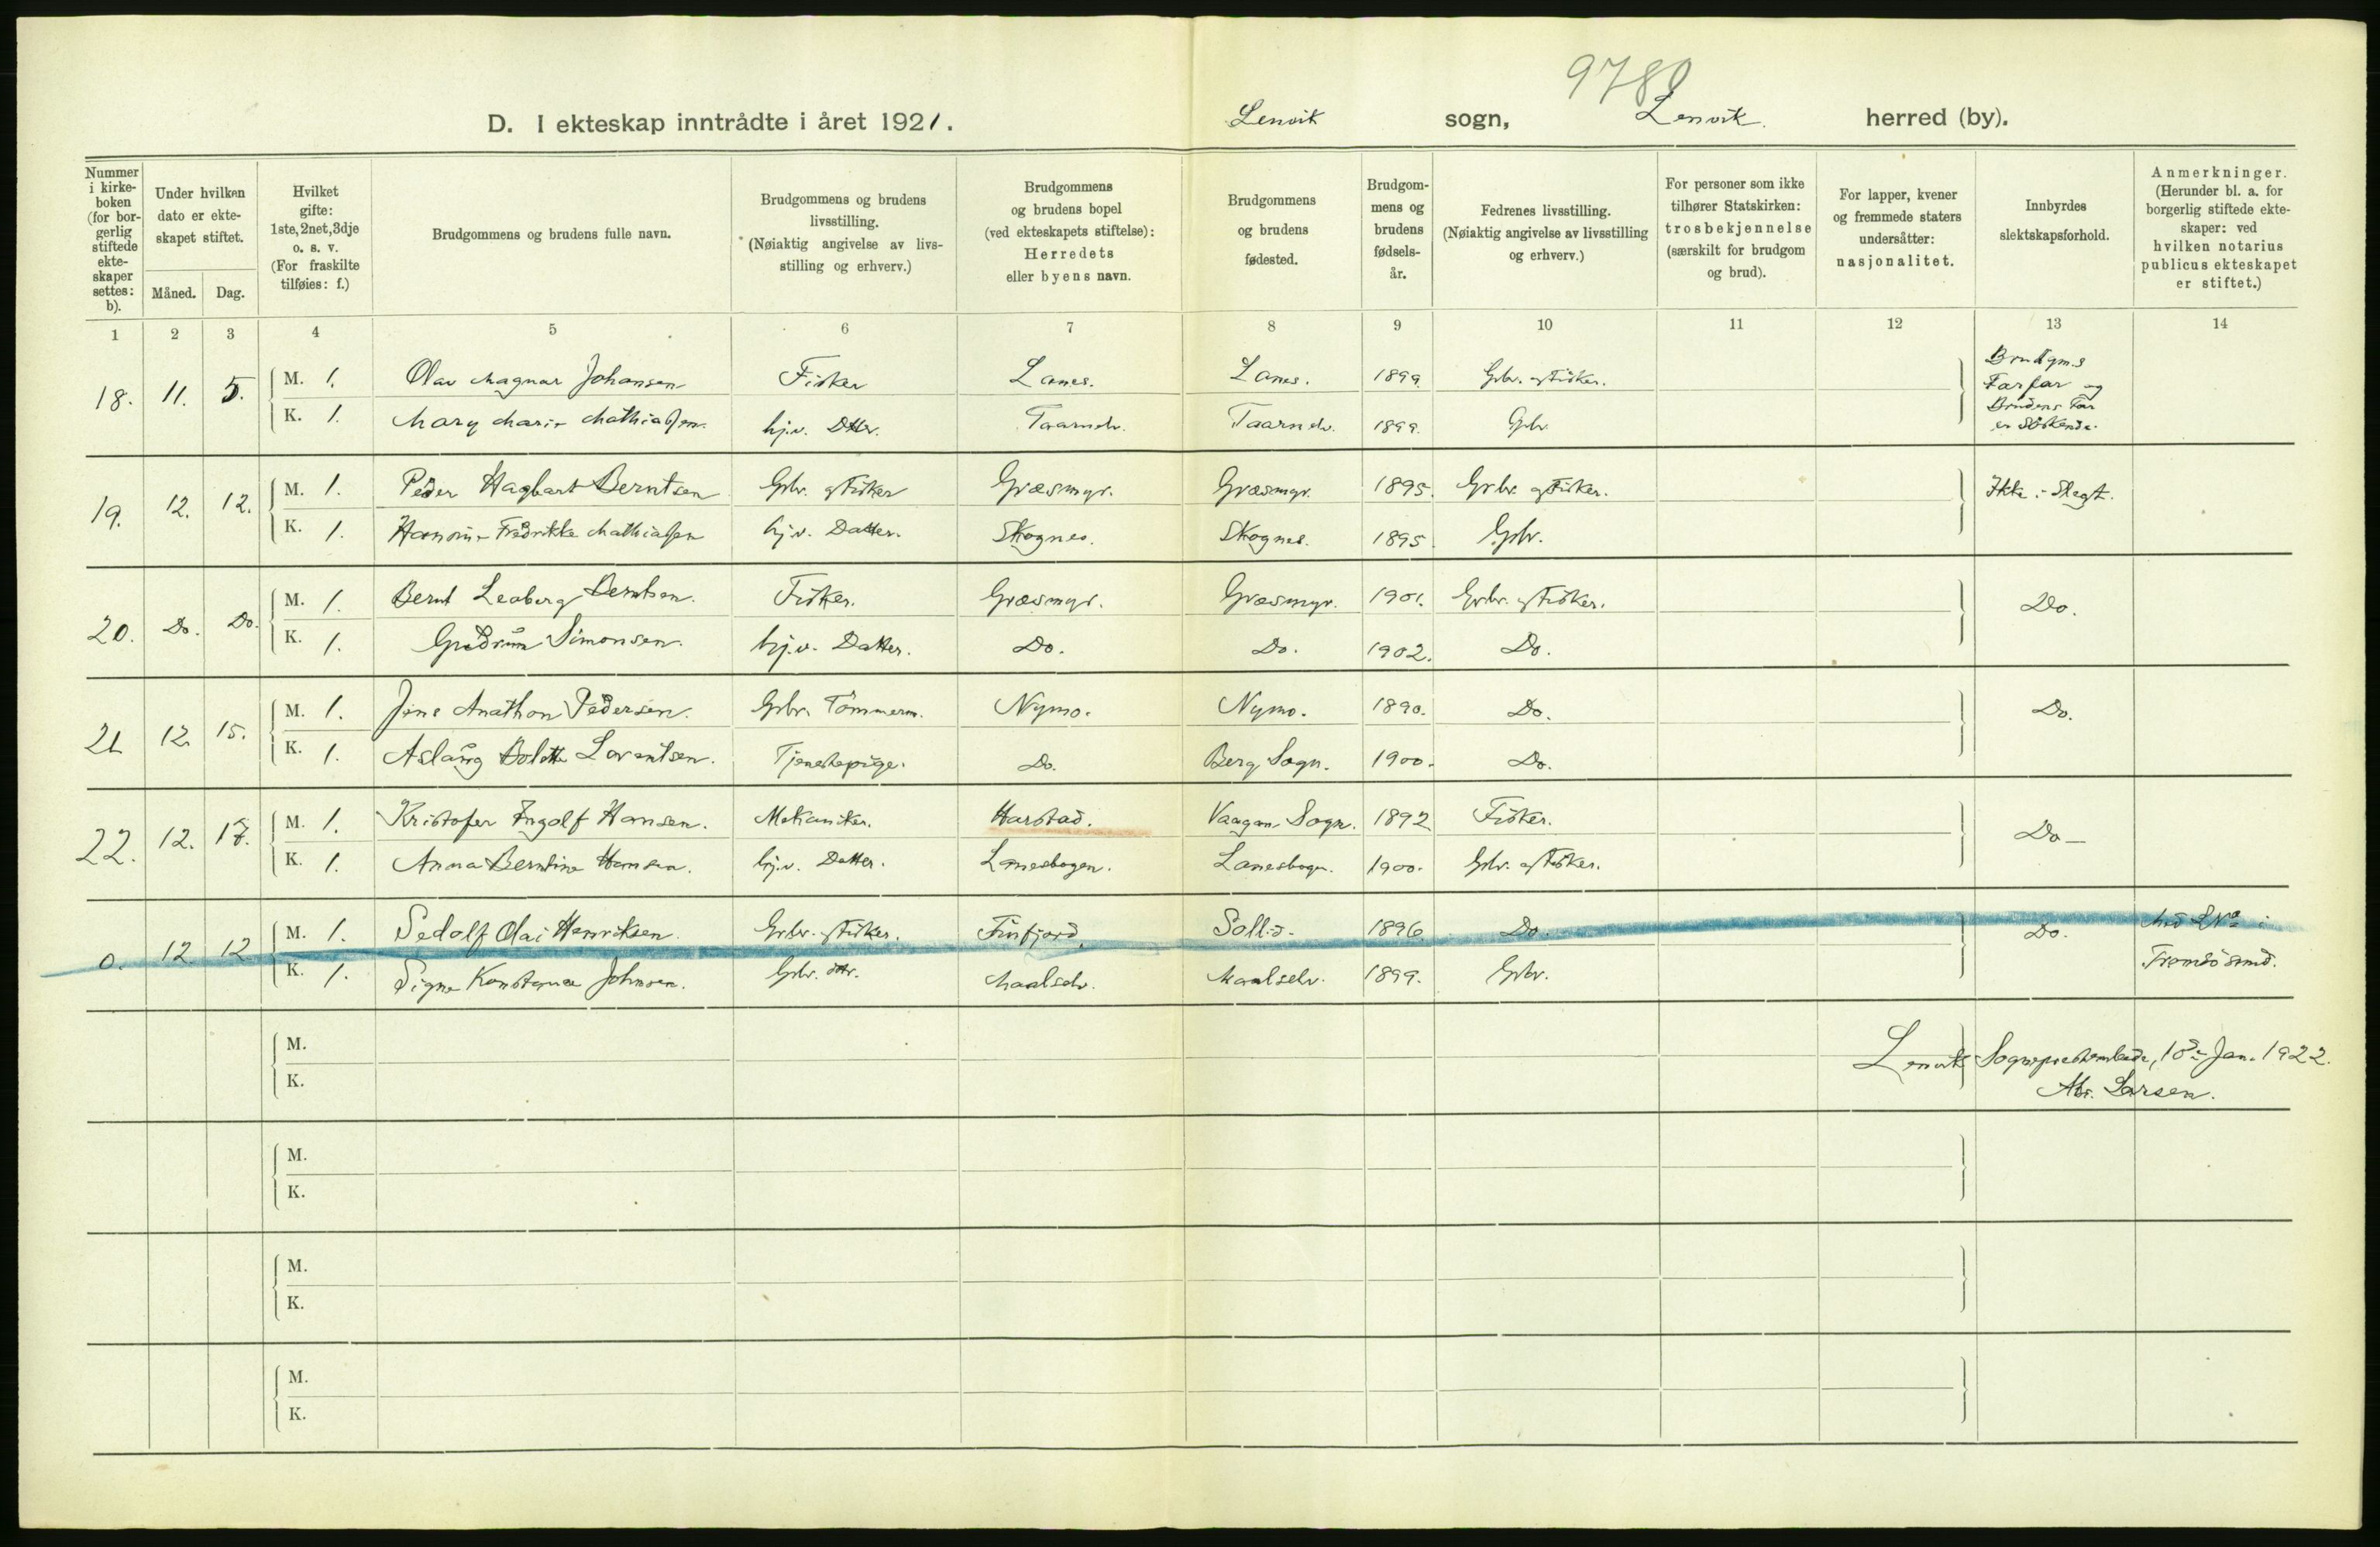 9780
D. I ekteskap inntrådte i året 1921. Lenvik sogn, Lenvik herred (by).
Nummer i kirke-boken (for bor-gerlig stiftede ekte-skaper settes: b).
Under hvilken dato er ekte-skapet stiftet.
Måned. Dag.
Hvilket gifte: 1ste, 2net, 3dje o. s. v. (For fraskilte tilføies: f.)
Brudgommens og brudens fulle navn.
Brudgommens og brudens livsstilling. (Nøiaktig angivelse av livs-stilling og erhverv.)
Brudgommens og brudens bopel (ved ekteskapets stiftelse): Herredets eller byens navn.
Brudgommens og brudens fødested.
Brudgom-mens og brudens fødsels-år.
Fedrenes livsstilling. (Nøiaktig angivelse av livsstilling og erhverv.)
For personer som ikke tilhører Statskirken: trosbekjennelse (særskilt for brudgom og brud).
For lapper, kvener og fremmede staters undersåtter: nasjonalitet.
Innbyrdes slektskapsforhold.
Anmerkninger. (Herunder bl. a. for borgerlig stiftede ekte-skaper: ved hvilken notarius publicus ekteskapet er stiftet.)
1 2 3 4 5 6 7 8 9 10 11 12 13 14
18. 11. 5. M. 1. Olav Magnar Johansen Fisker Lanes. Lanes. 1899. Gbr. og Fisker. Brudgms Farfar og Brudens Far er Søskende.
K. 1. Mary Marie Mathiassen. hj.v. Dtter. Taarnelv. Taarnelv. 1899. Gbr.
19. 12. 12. M. 1. Peder Hagbart Berntsen Gbr. og Fisker Græsmyr. Græsmyr. 1895. Gbr. og Fisker. Ikke i Slegt.
K. 1. Fredrikke Mathiassen hj.v. Datter. Skognes. Skognes. 1895. Gbr.
20. Do. Do. M. 1. Bernt Leaberg Berntsen. Fisker. Græsmyr. Græsmyr. 1901. Gbr. og Fisker. Do.
K. 1. Gudrun Simonsen. hj.v. Datter. Do. Do. 1902. Do.
21. 12. 15. M. 1. Jens Anathon Pedersen. Gbr. Tømmerm. Nymo. Nymo. 1890. Do. Do.
K. 1. Aslaug Bolette Lorentsen. Tjenestepige. Do. Berg Sogn. 1900. Do.
22. 12. 17. M. 1. Kristofer Ingolf Hansen. Mekaniker. Harstad. Vaagan Sogn. 1892 Fisker. Do—
K. 1. Anna Berntine Hansen. hj.v. Datter. Lanesbogen. Lanesbogn. 1900. Gbr. og Fisker.
0. 12. 12 M. 1. Sedolf Olai Henriksen. Gbr. og Fisker. Finfjord. Sollid. 1896. Do. Do. i
K. 1. Signe Konstanse Johnsen. Gbr. dtr. Maalselv. Maalselv. 1899. Gbr. Tromsøsund.
M. Lenvik Sogneprestembede, 18de Jan. 1922.
K. Larsen.
M.
K.
M.
K.
M.
K.